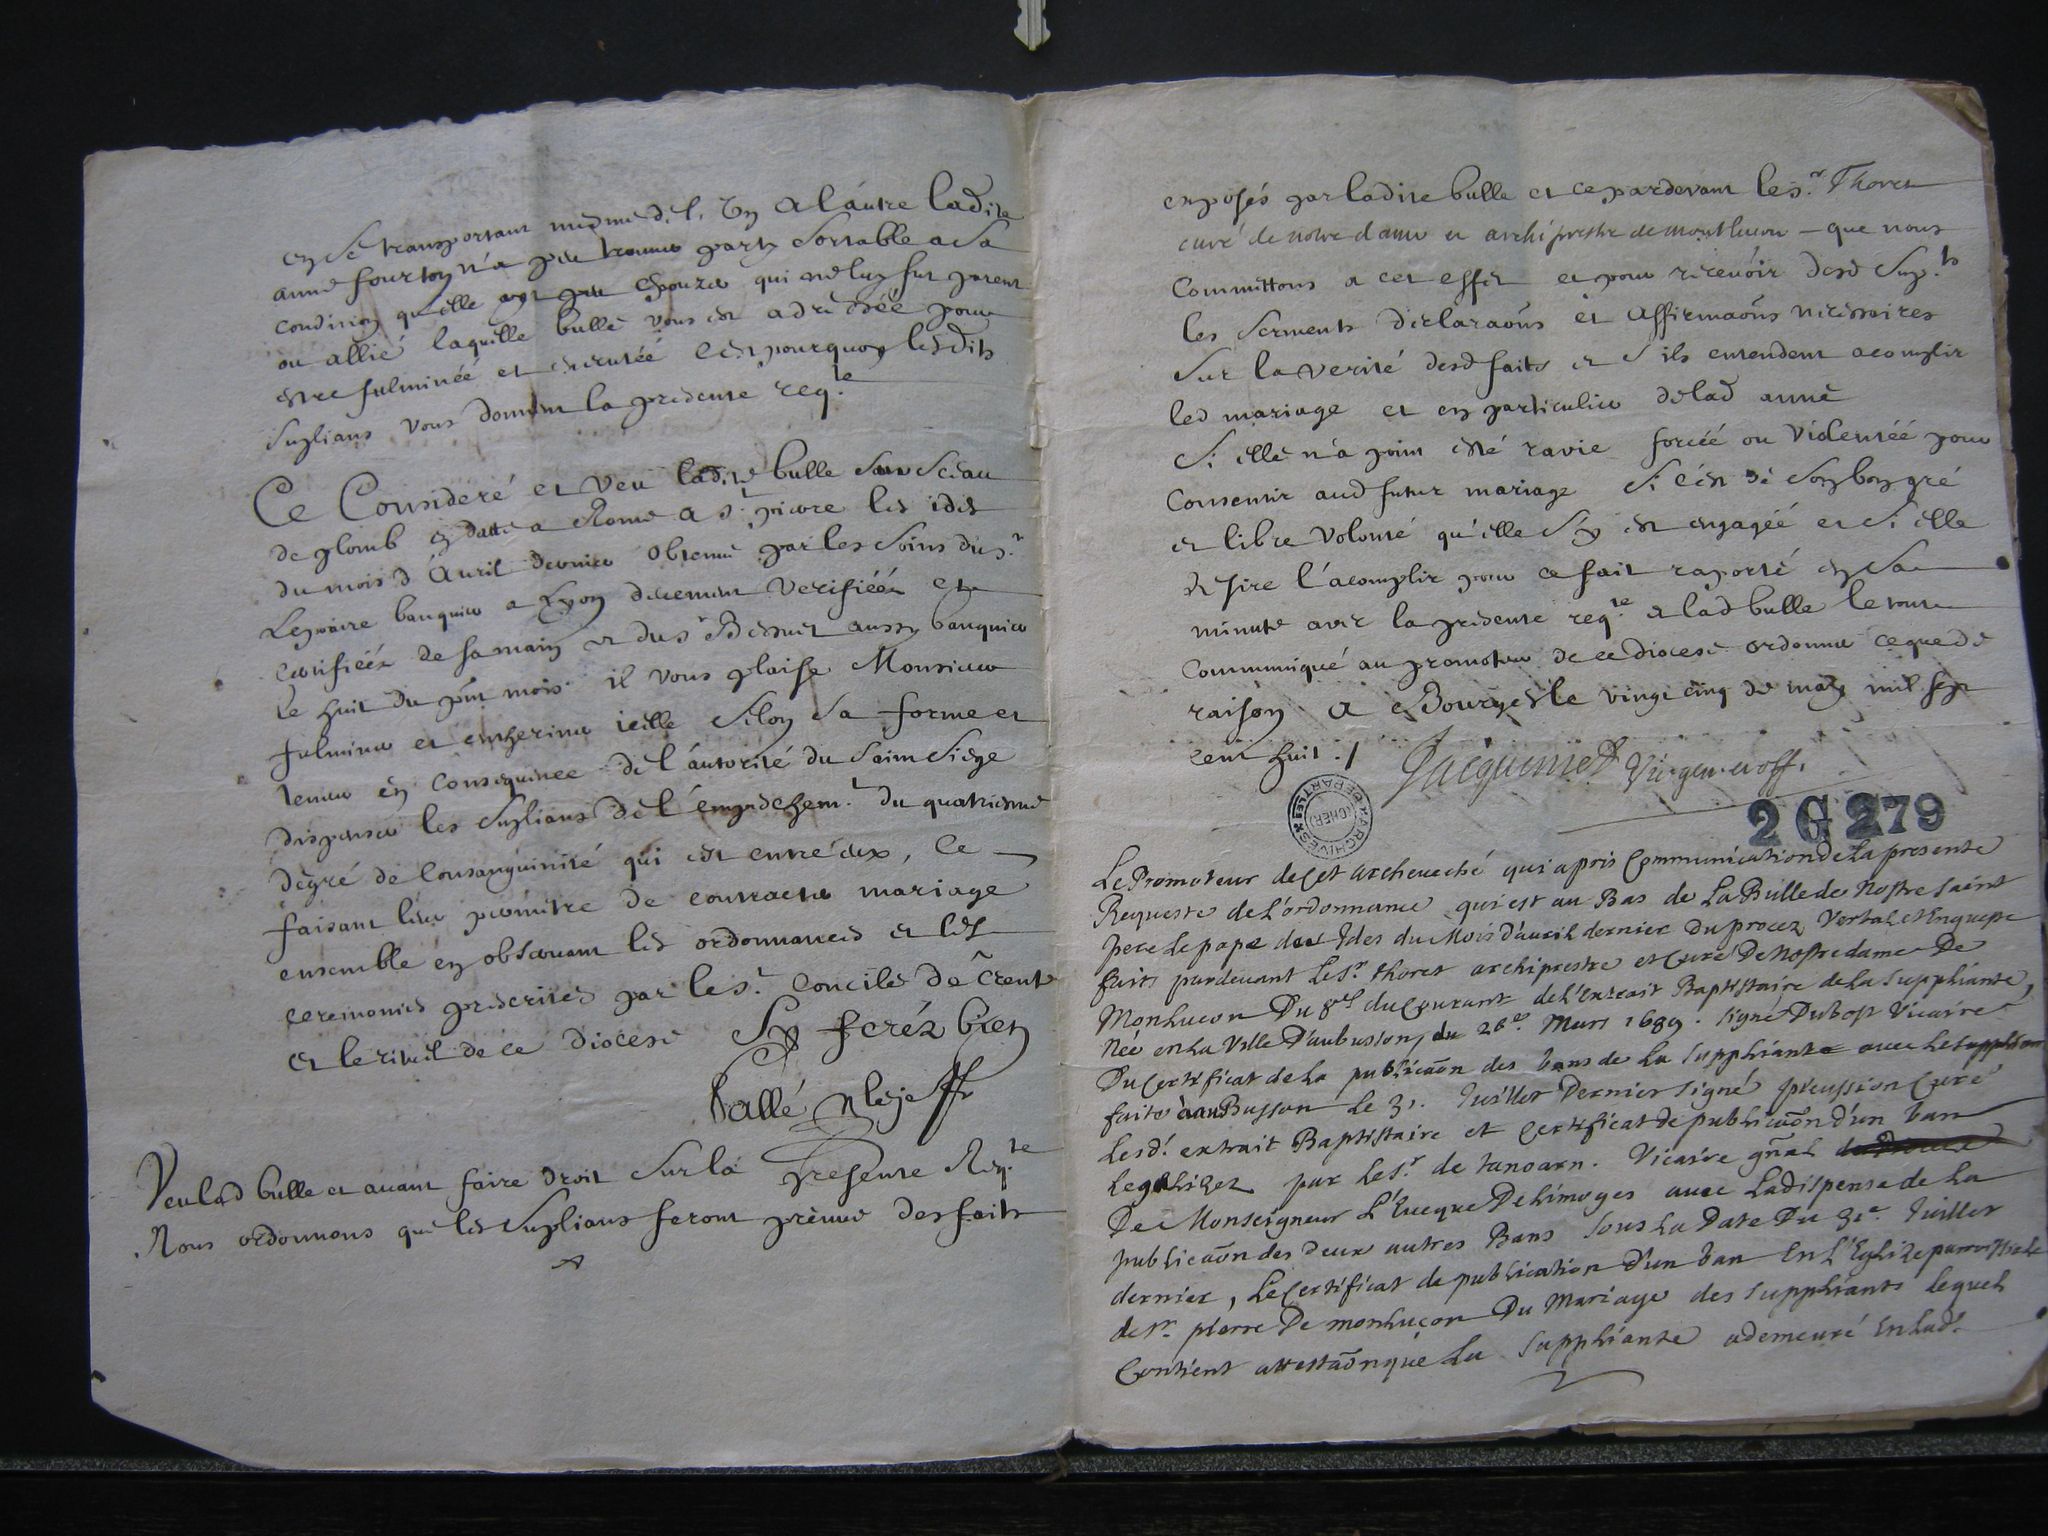 en se transportant mesme de l'un a l'autre ladite
anne fourton n'a peu trouver party sortable a sa
condition qu'elle ayt peu espouzer qui ne luy fut parent
ou allié laquelle bulle vous est adressée pour
estre fulminée et executée c'est pourquoy lesdits
suplians vous donnent la presente req.te
Ce Consideré et veu ladite bulle sous sceau
de plomb en datte a Rome a s.t pierre les ides
du mois d'Avril dernier obtenue par les soins du s.r
banquier a Lyon deuement verifiéé et
certifiéé de sa main et du s.r aussy banquier
le huit du pñt mois il vous plaise Monsieur
fulminer et entheriner icelle selon sa forme et
teneur en consequence de l'autorité du saint siège
dispenser les suplians de l'empeschem.t du quatriesme
dègré de consanguinité qui est entre eux, ce
faisant leur permettre de contracter mariage
ensemble en observant les ordonnances et les
ceremonies prescrites par le s.t concile de Trente
et le rituel de ce diocese Sy feréz bien
Veu lad bulle et avant faire droit sur la presente Req.te
Nous ordonnons que les suplians feront preuve des faits
exposés par ladite bulle et ce pardevant le s.r Thoret
curé de notre dame et archiprestre de montlucon — que nous
committons a cet effet et pour recevoir desd sup.ts
les serments declaraõns et affirmaõns necessaires
sur la verité desd faits et s'ils entendent acomplir
led mariage et en particulier de lad anne
si elle n'a point esté ravie forcéé ou violentéé pour
consentir aud futur mariage si c'est de son bon gré
et libre volonté qu'elle s'y est engagéé et si elle
desire l'acomplir pour ce fait raporté en sa
minute avec la presente req.te et lad bulle le tout
communiqué au promoteur de ce diocese ordonner ce que de
raison a Bourges le vingt cinq de may mil sept
cent huit ./ Jacquemet Vic gen et off.
ARCHIVES DEPARTLES (CHER)
2 G 279
Le Promoteur de Cet archeveché qui a pris Communication de La presente
Requeste de L'ordonnance qui est au Bas de La Bulle de Nostre saint
pere Le pape des Ides du Mois d'auril dernier du procez verbal et Enqueste
faits pardevant Le S.r thoret archiprestre et Curé De Nostre dame De
Monlucon Du du Courant de L'Extrait Baptistaire de La suppliante,
Née en La Ville D'aubusson, du 28.e Mars 1689. signé Dubost Vicaire
Du Certificat de La publicaõn des bans de La suppliante avec Le suppliant
faite à auBusson Le 31. Juillet Dernier signé Curé
Lesd.t extrait Baptistaire et Certificat de publicaõn d'un ban
Legalisez par Le S.r de tanoarn. Vicaire gñal
De Monseigneur L'Eveque De Limoges avec La dispense de La
publicaõn des deux autres Bans sous La Date Du 31.e Juillet
dernier, Le Certificat de publication D'un ban En L'Eglize parroissiale
de S.t pierre De monlucon Du Mariage des suppliants lequel
Contient attestaõn que La suppliante a demeuré En Lad.